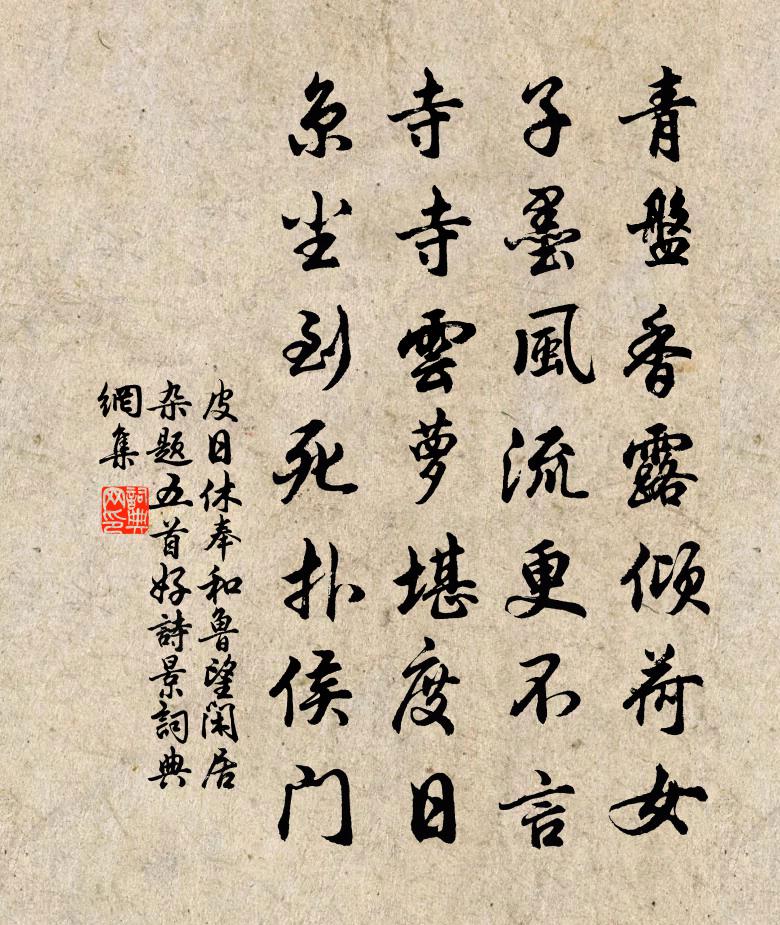 青盤香露倾荷女
子墨風流更不言
寺寺雲萝堪度日
京尘到死扑侯门
皮日休奉和魯望闲居
杂题五首好詩景詞典
網集
詞典
网印